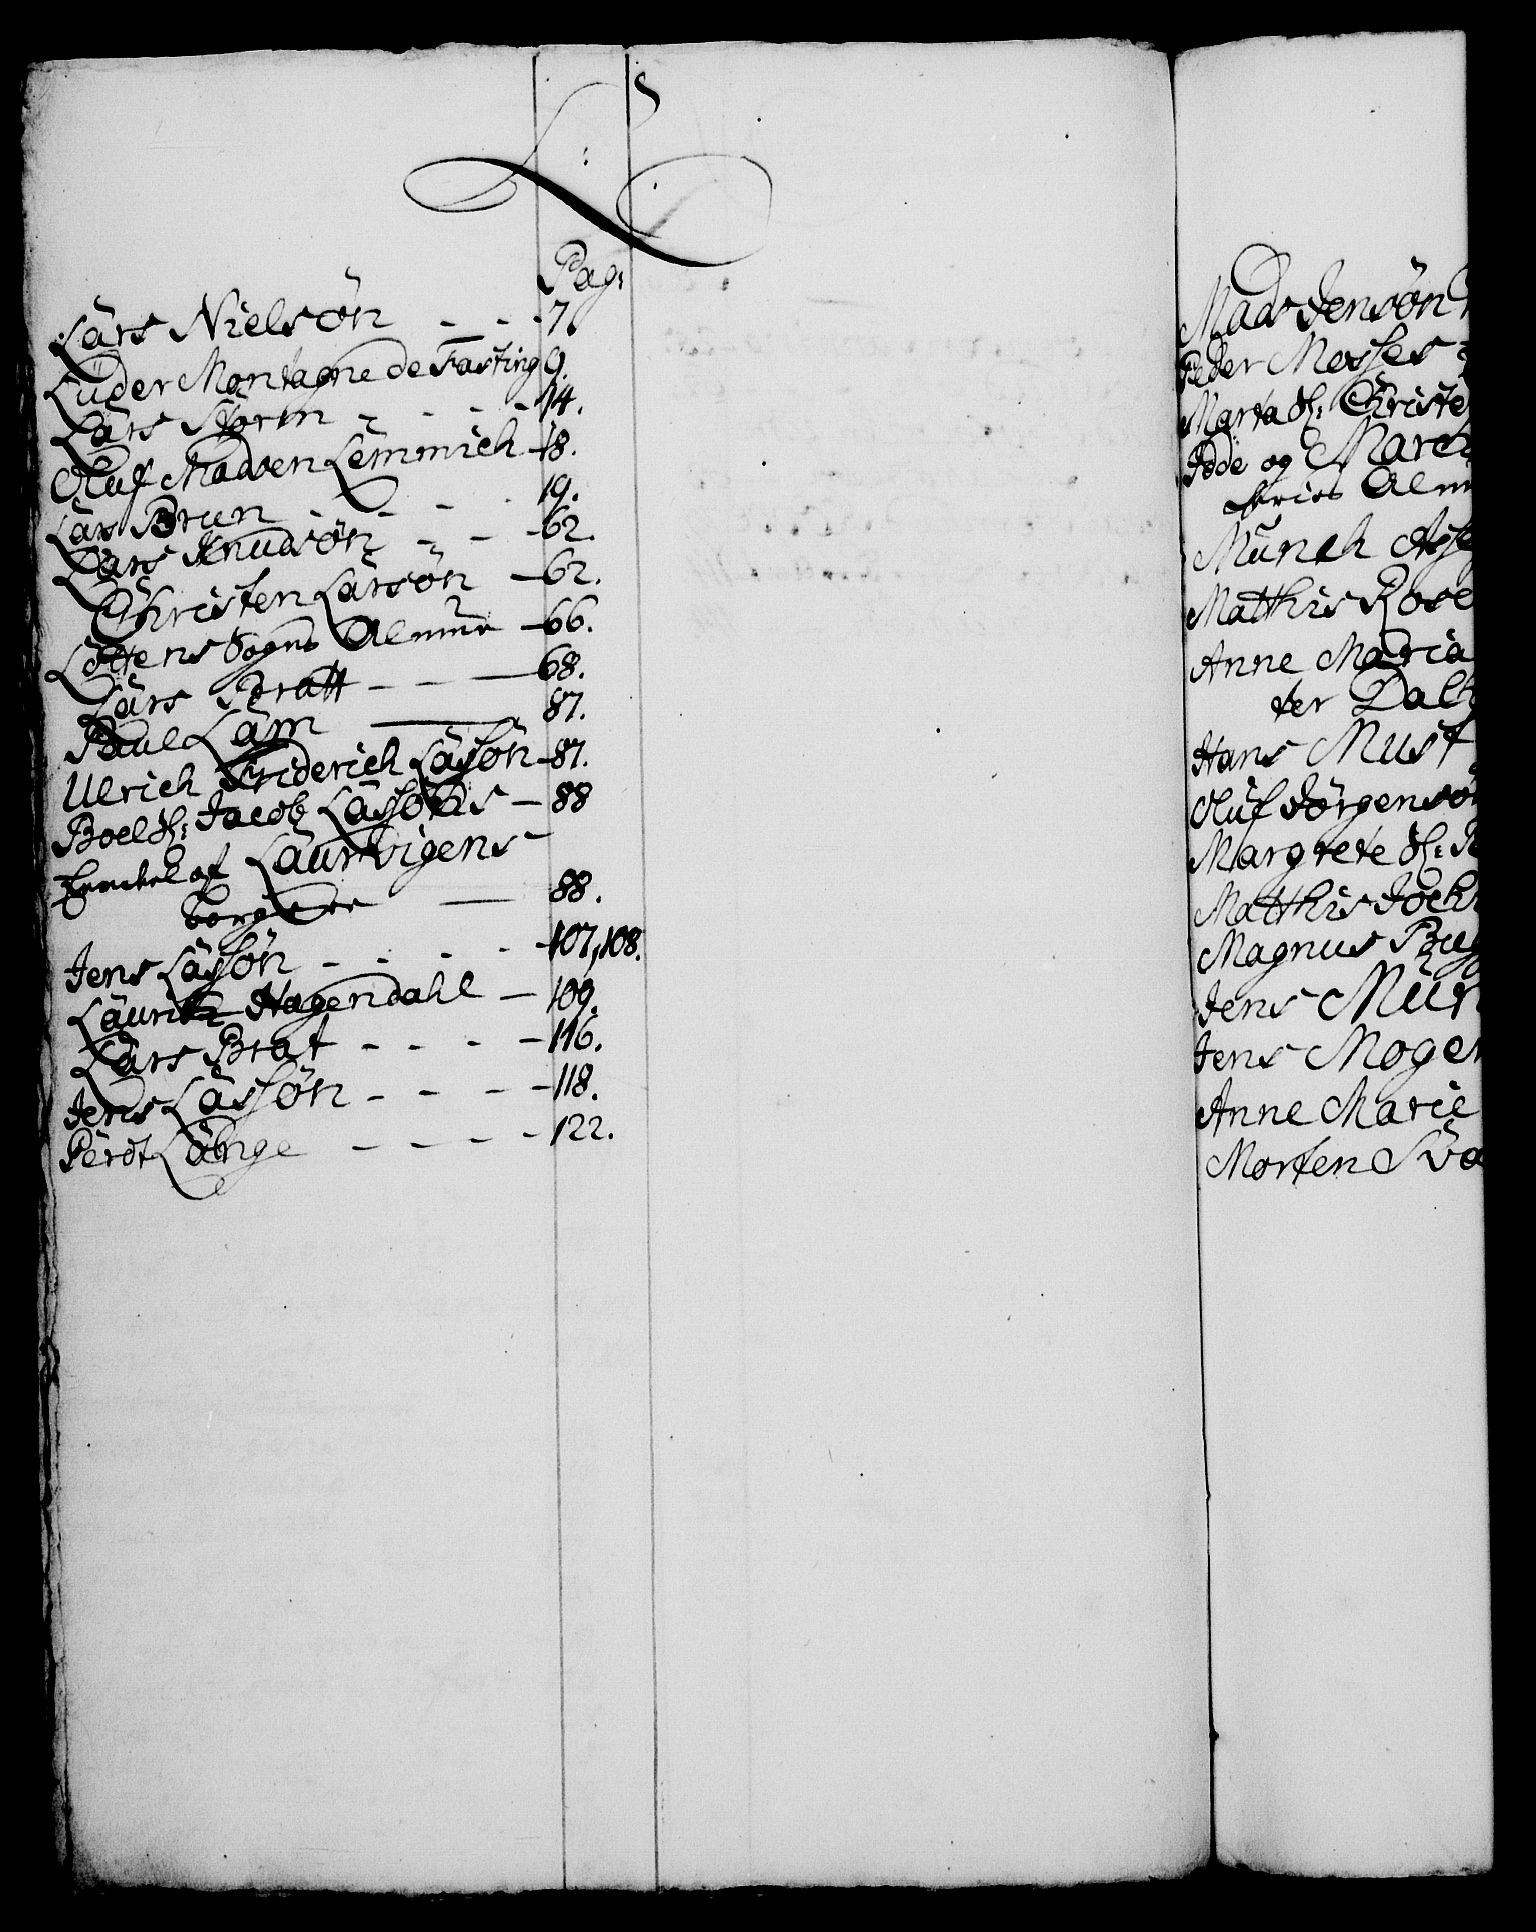 L:
Pag:
Lars Nielsøn - - - 7.
Lüder Montagne de Fasting 9.
Lars Storm - - - - 14.
Oluf Madsen Lemmich - 18.
Lars Brun - - - - 19.
Lars Knudsøn - - - 62.
Christen Larsøn - 62.
Løttens Sogns Almue - 66.
Lars Pratt - - - 68.
Paul Lam - 87.
Ulrich Friderich Lasøn - 87.
Boel S: Jacob Lassøns - 88
Encket af Laurvigens
borgere - 88.
Jens Lassøn - - - - 107, 108.
Lauritz Hagendahl - 109.
Lars Brat - - - - 116.
Jens Lassøn - - - - 118.
Perdt Lange - - - - 122.
Mads Jensøn
Peder Mosses
Marta S: Christe
Pode og March
Almu
Münch
Matthis Rose
Anne Maria
ter Dalt
Hans Must
Oluf Jørgensøn
Margrete S:
Matthis Joch
Magnus Bug
Jens Mün
Jens Mogen
Anne Marie
Morten Sva